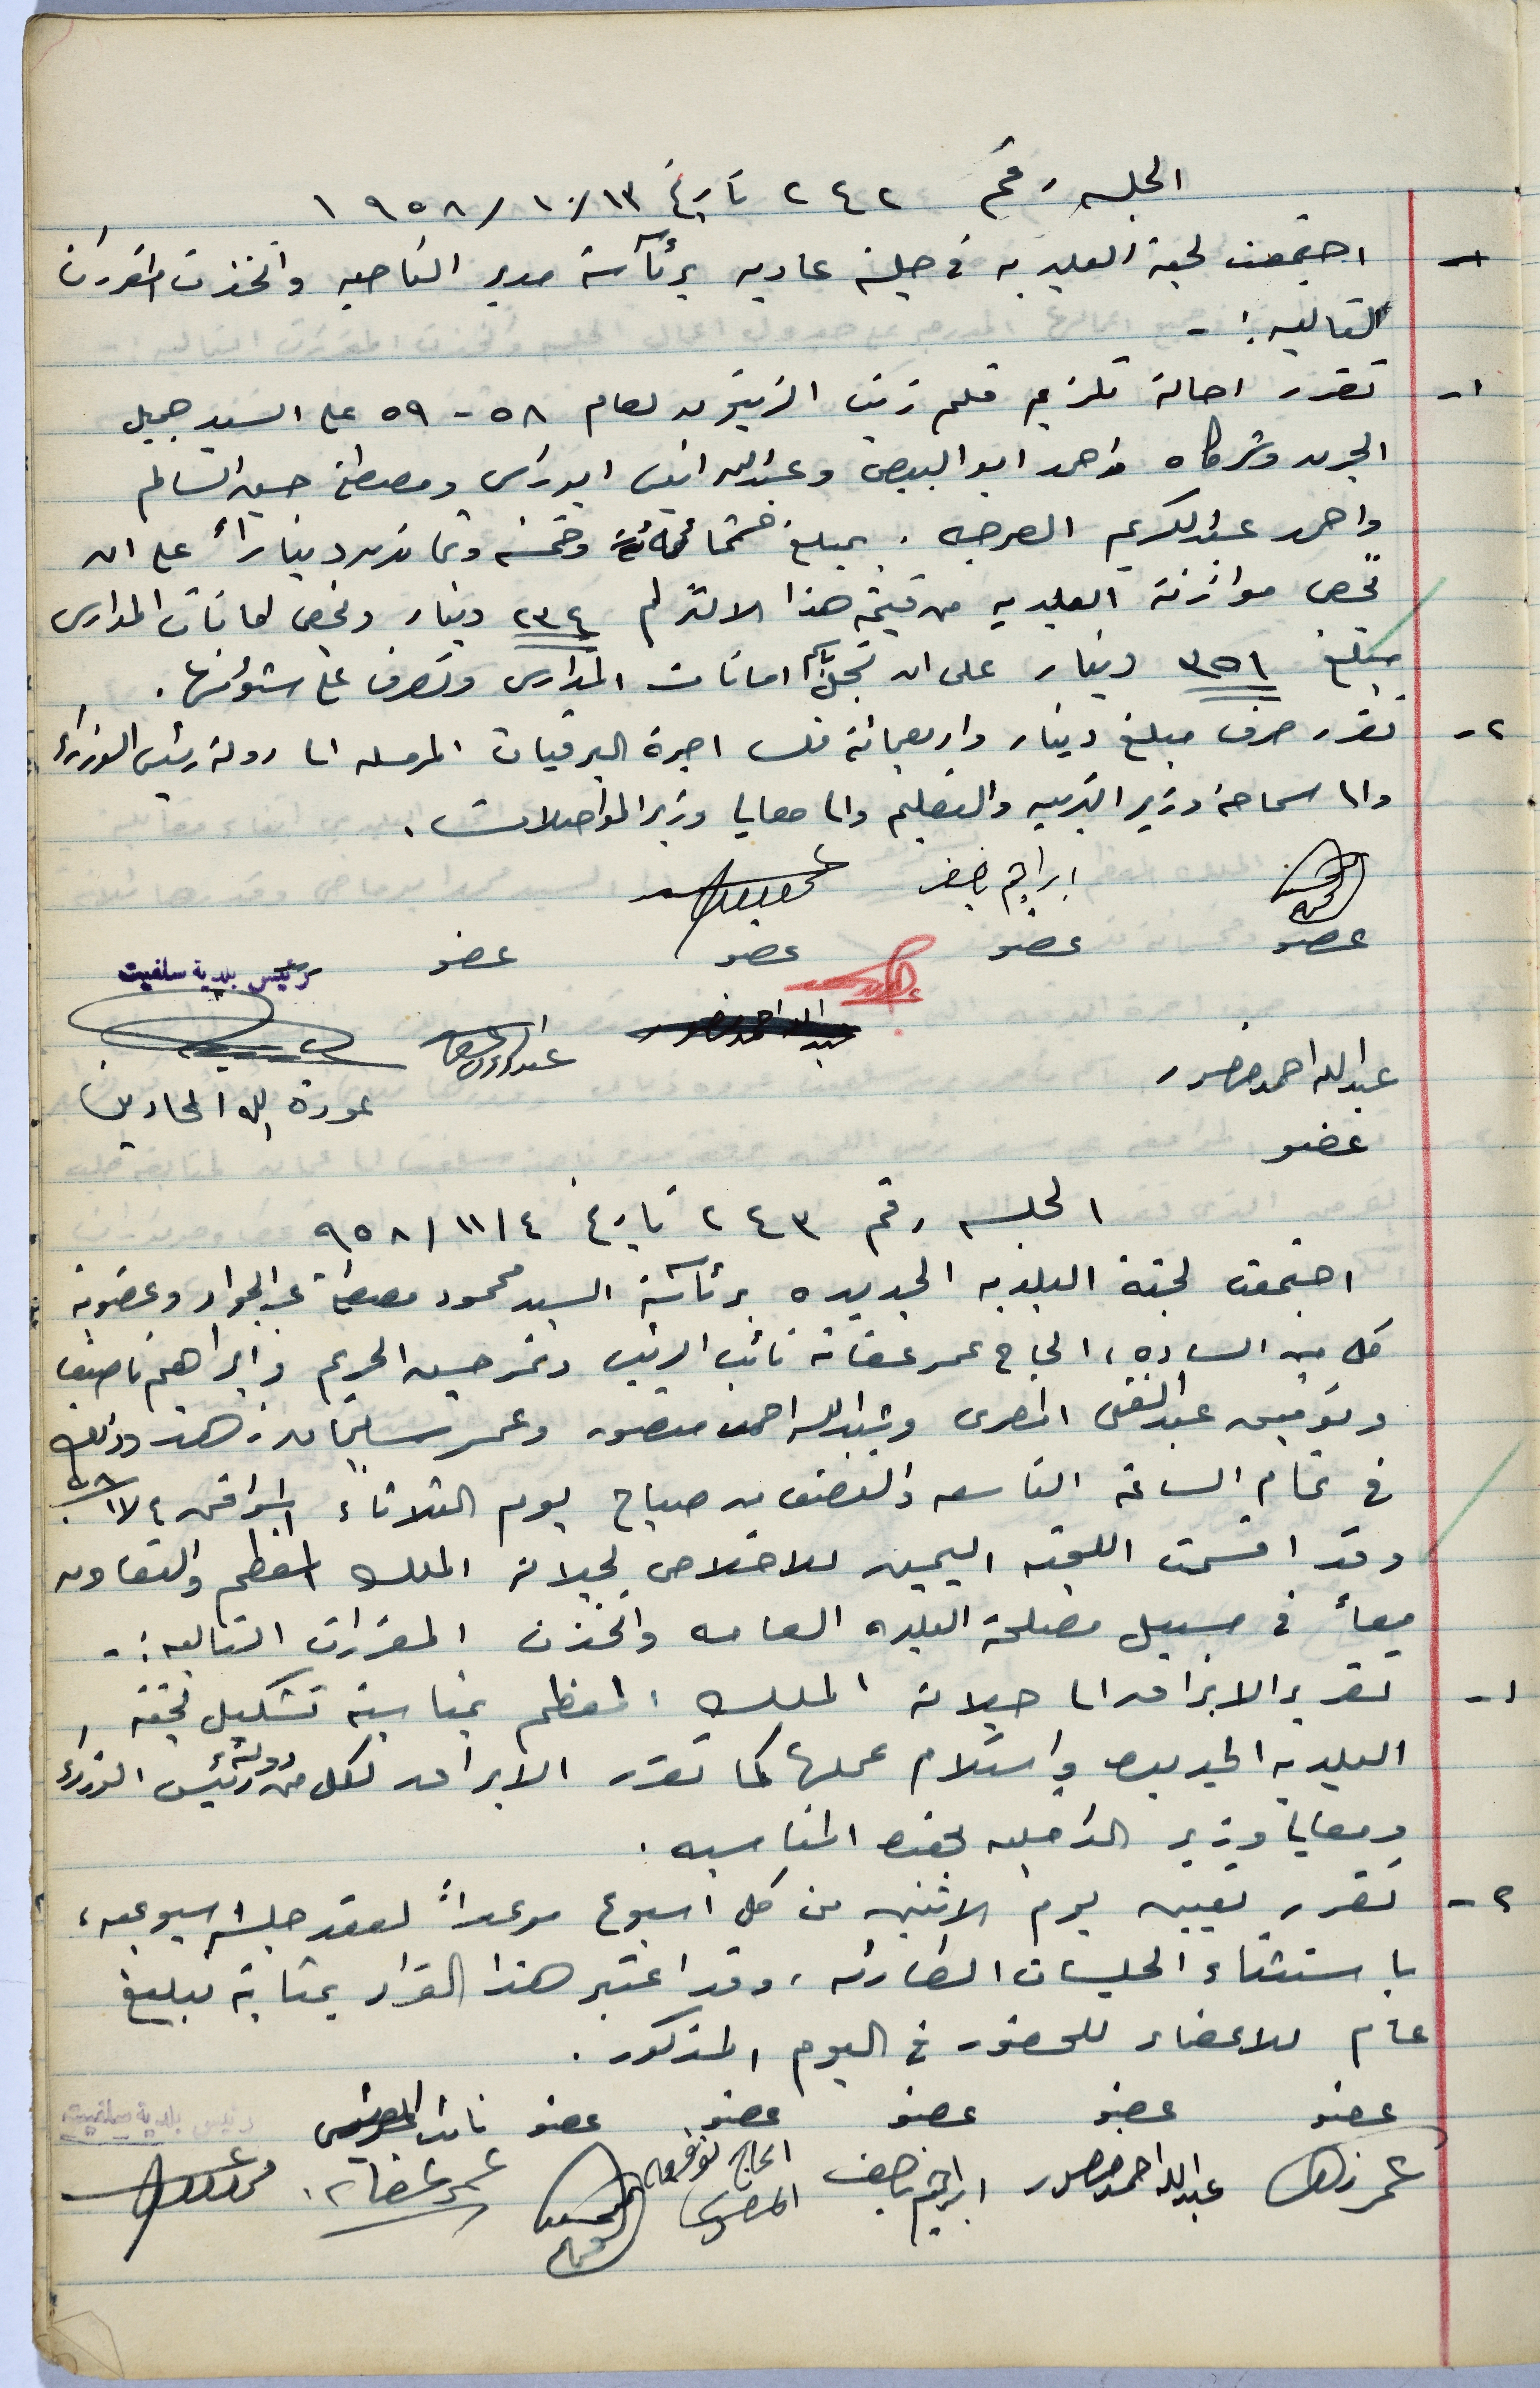 الجلسه رقم ٢٤٢ تاريخ ١٣/١٠/١٩٥٨
اجتمعت لجنة البلديه في جلسة عاديه برئآسة مدير الناحيه واتخذت المقررات
التاليه :-
١- تقرر احالة تلزيم قلم زيت الزيتون لعام ٥٨ - ٥٩ على السيد جميل
وشركاه واحمد ابو البيص وعبدالله ومصطفى حسين السالم
واحمد عبدالكريم . بمبلغ خمسمائة وخمسه وثمانون ديناراً على ان
تخص موازنة البلديه من قيمة هذا الالتزام ٢٣٤ دينار وتخص امانات المدارس
مبلغ ٣٥١ دينار على ان تسجل باسم امانات المدارس وتصرف على شئونها .
٢- تقرر صرف مبلغ دينار واربعمائة فلس اجرة البرقيات المرسله الى دولة رئيس الوزراء
والى سماحة وزير التربيه والتعليم والى معالي وزير المواصلات .
ابراهيم ناصف
عضو عضو عضو عضو رئيس بلدية سلفيت
عبدالله احمد منصور
عبدالله احمد منصور
عودة الله
عضو
الجلسه رقم ٢٤٣ تاريخ ٤/١١/٩٥٨
اجتمعت لجنة البلديه الجديده برئآسة السيد محمود مصطفى عبدالجواد وعضوية
كل من الساده ، الحاج عمر عفانه نائب الرئيس ونمر حسين وابراهيم ناصف
وتوفيق عبدالغني المصري وعبدالله احمد منصور وعمر سليمان زهد وذلك
في تمام الساعة التاسعه والنصف من صباح يوم الثلاثاء الموافق ٤/١١/٥٨
وقد اقسمت اللجنه اليمين للاخلاص لجلالة الملك المعظم والتعاون
معاً في سبيل مصلحة البلده العامه واتخذت المقررات التاليه :-
١- تقرر الابراق الى جلالة الملك المعظم بمناسبة تشكيل لجنة
البلديه الجديده واستلام عملها كما تقرر الابراق لكل من دولة رئيس الوزراء
ومعالي وزير الداخليه بهذه المناسبه .
٢- تقرر تعيين يوم الاثنين من كل اسبوع موعداً لعقد جلسه اسبوعيه ،
باستثناء الجلسات الطارئه ، وقد اعتبر هذا القرار بمثابة تبليغ
عام للاعضاء للحضور في اليوم المذكور .
عضو عضو عضو عضو عضو نائب الرئيس رئيس بلدية سلفيت
عمر زهد عبدالله احمد منصور ابراهيم ناصف الحاج توفيق المصري عمر عفانه